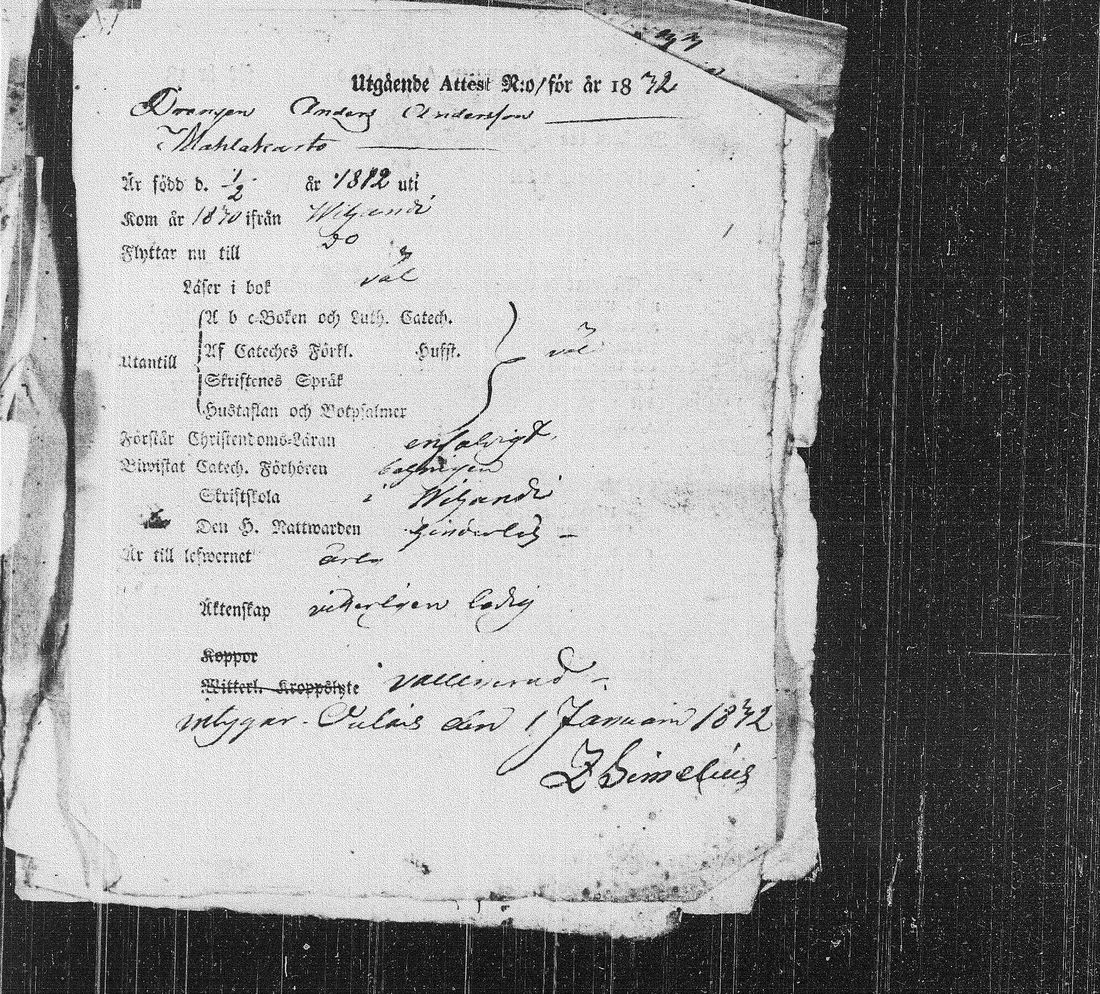 Utgående Attest N:o/för år 1872
Drängen Anders Andersson
Mahlakarto
Är född d. 1/2 år 1812 uti
Kom år 1870 ifrån Wihandi
Flyttar nu till Do
Läser i bok väl
Utantill
A b c-Boken och Luth. Catech.
Af Cateches Förkl. Hufft. väl
Skriftenes Språk
Hustaflan och Botpsalmer
Förstår Christendoms-Läran enfalvigt,
Biwistat Catech. Förhören
Skriftskola i Wihandi
Den H. Nattwarden
Är till lefwernet ärlig
Äktenskap vitterligen ledig
Koppor
Witterl. Kroppslyte vaccinerad
intygar. Oulais den 1 Januari 1872
Z Simelius